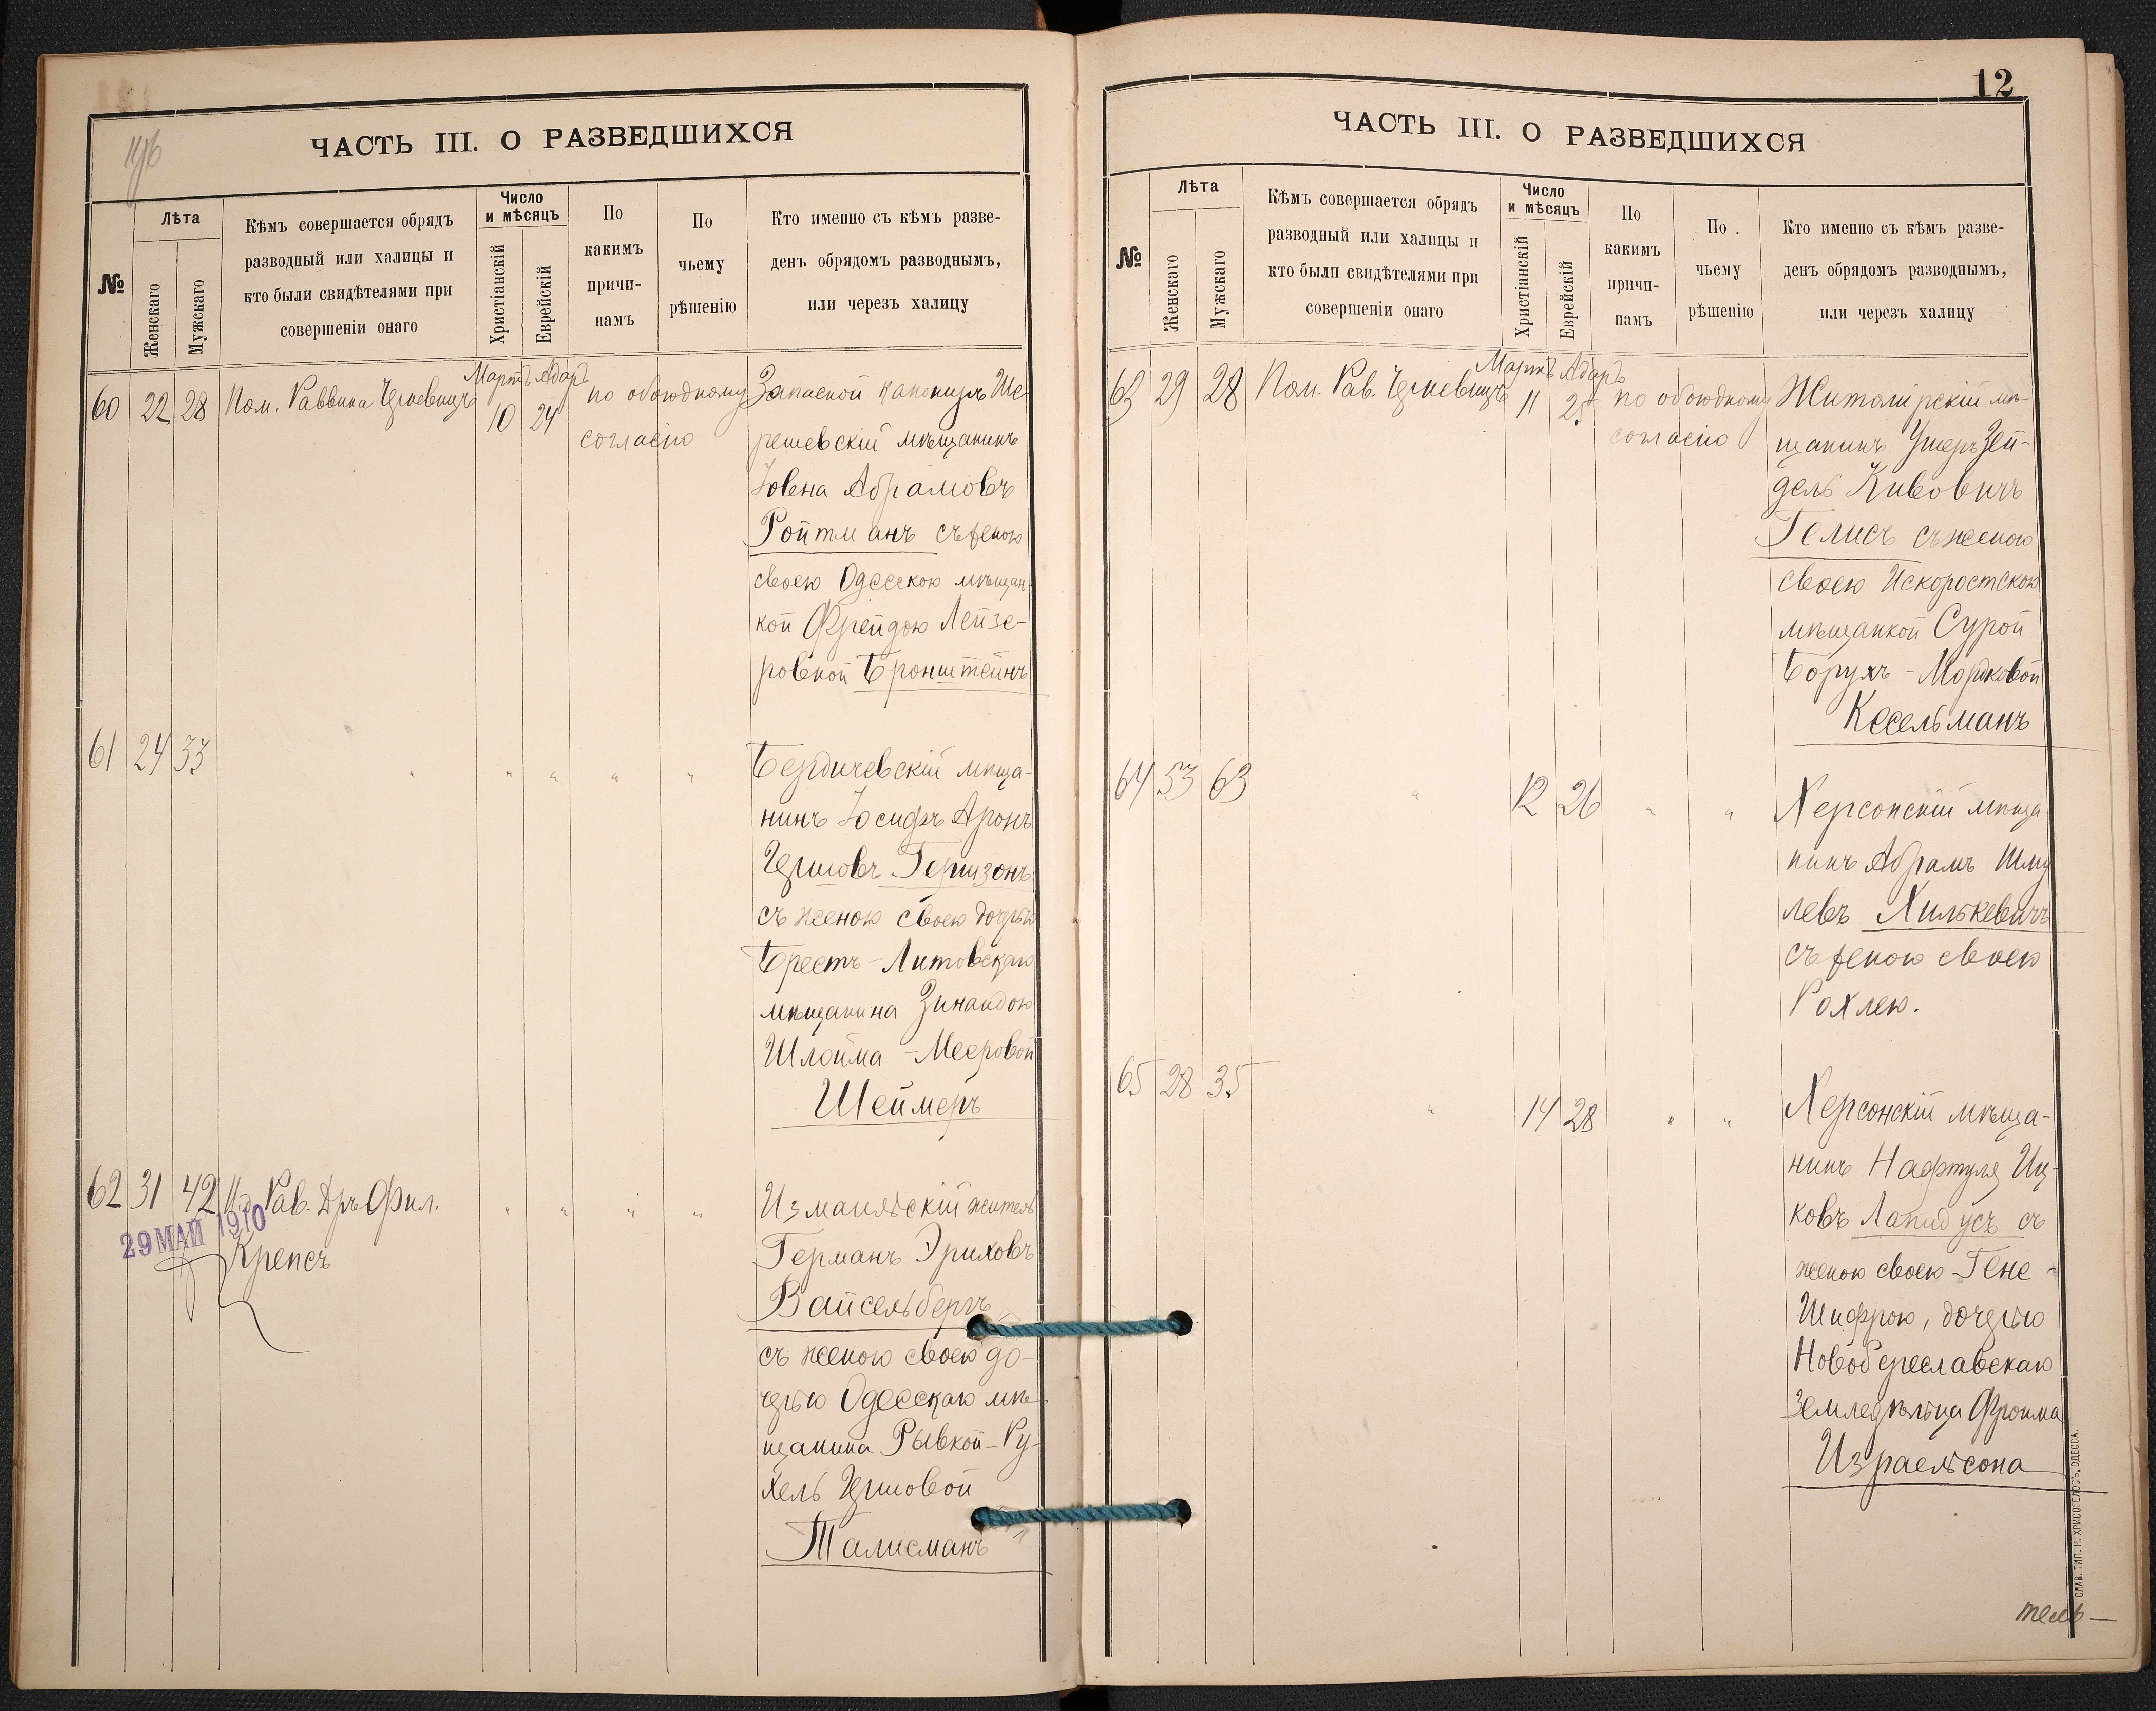 ЧАСТЬ III. О РАЗВЕДШИХСЯ
№
Лѣта
Женскаго
Мужскаго
Кѣмъ совершается обрядъ
разводный или халицы и
кто были свидѣтелями при
совершеніи онаго
Число
и мѣсяцъ
Христіанскій
Еврейскій
По
какимъ
причи-
намъ
По
чьему
рѣшенію
Кто именно съ кѣмъ разве-
денъ обрядомъ разводнымъ,
или черезъ халицу
Мартъ Адаръ
60 22 28 Пом. Раввина 10 24 по обоюдному
согласію
Запасной канониръ Ше-
решевскій мѣщанинъ
Іовена Абрамовъ
Ройтманъ съ женою
своею Одесскою мѣщан-
кой Фрейдою Лейзе-
ровной Бронштейнъ
61 24 33 " " " " "
Бердичевскій мѣща-
нинъ Іосифъ Аронъ
Гершзонъ
съ женою своею дочерью
Брестъ-Литовскаго
мѣщанина Зинаидою
Шлойма-Мееровой
Шеймеръ
62 31 42 И.д. Рав. Д-ръ Фил.
Крепсъ
" " " "
29 МАЙ 1910
Измаильскій житель
Германъ Эриховъ
Вайсельбергъ
съ женою своею до-
черью Одесскаго мѣ-
щанина Рывкой-Ру-
хель Гершовой
Талисманъ
12
ЧАСТЬ III. О РАЗВЕДШИХСЯ
№
Лѣта
Женскаго
Мужскаго
Кѣмъ совершается обрядъ
разводный или халицы и
кто были свидѣтелями при
совершеніи онаго
Число
и мѣсяцъ
Христіанскій
Еврейскій
По
какимъ
причи-
намъ
По
чьему
рѣшенію
Кто именно съ кѣмъ разве-
денъ обрядомъ разводнымъ,
или черезъ халицу
Мартъ Адаръ
63 29 28 Пом. Рав. 11 25 по обоюдному
согласію
Житомірскій мѣ-
щанинъ Ушеръ Зей-
дель Кивовичъ
Гелисъ съ женою
своею Искоростскою
мѣщанкой Сурой
Борухъ-Мордковой
Кесельманъ
64 53 63 " 12 26 " "
Херсонскій мѣща-
нинъ Абрамъ Шму-
левъ Хилькевичъ
съ женою своею
Рохлею.
65 28 35 " 14 28 " "
Херсонскій мѣща-
нинъ Нафтуля Иц-
ковъ Лапидусъ съ
женою своею Гене-
Шифрою, дочерью
Новобереславскаго
Земледѣльца Фроима
Израельсона
СЛАВ. ТИП. Н. ХРИСОГЕЛОСЪ, ОДЕССА.